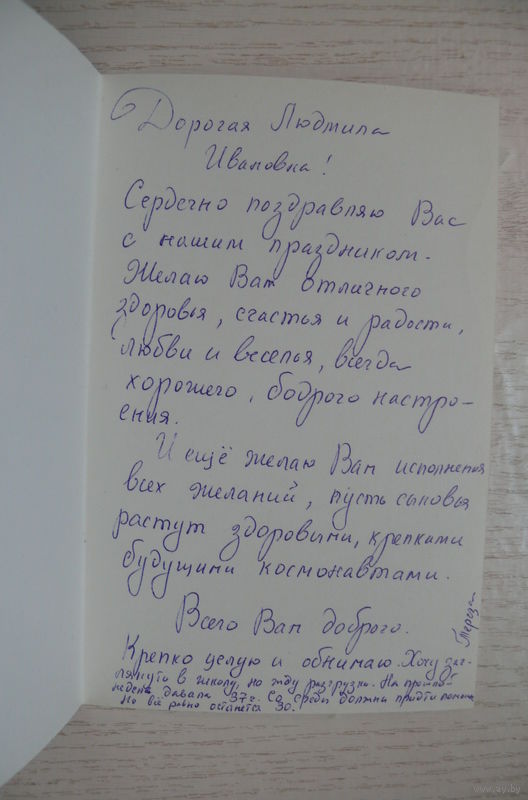 Дорогая Людмила
Ивановна!
Сердечно поздравляю Вас
с нашим праздником.
Желаю Вам отличного
здоровья, счастья и радости,
любви и веселья, всегда
хорошего, бодрого настро-
ения.
И ещё желаю Вам исполнения
всех желаний, пусть сыновья
растут здоровыми, крепкими
будущими космонавтами.
Всего Вам доброго.
Крепко целую и обнимаю. Хочу заг-
лянуть в школу, но жду разгрузки. На прошлой
неделе давала 37 с. Со среды должна придти
Но всё равно останется 30.
www.ay.by